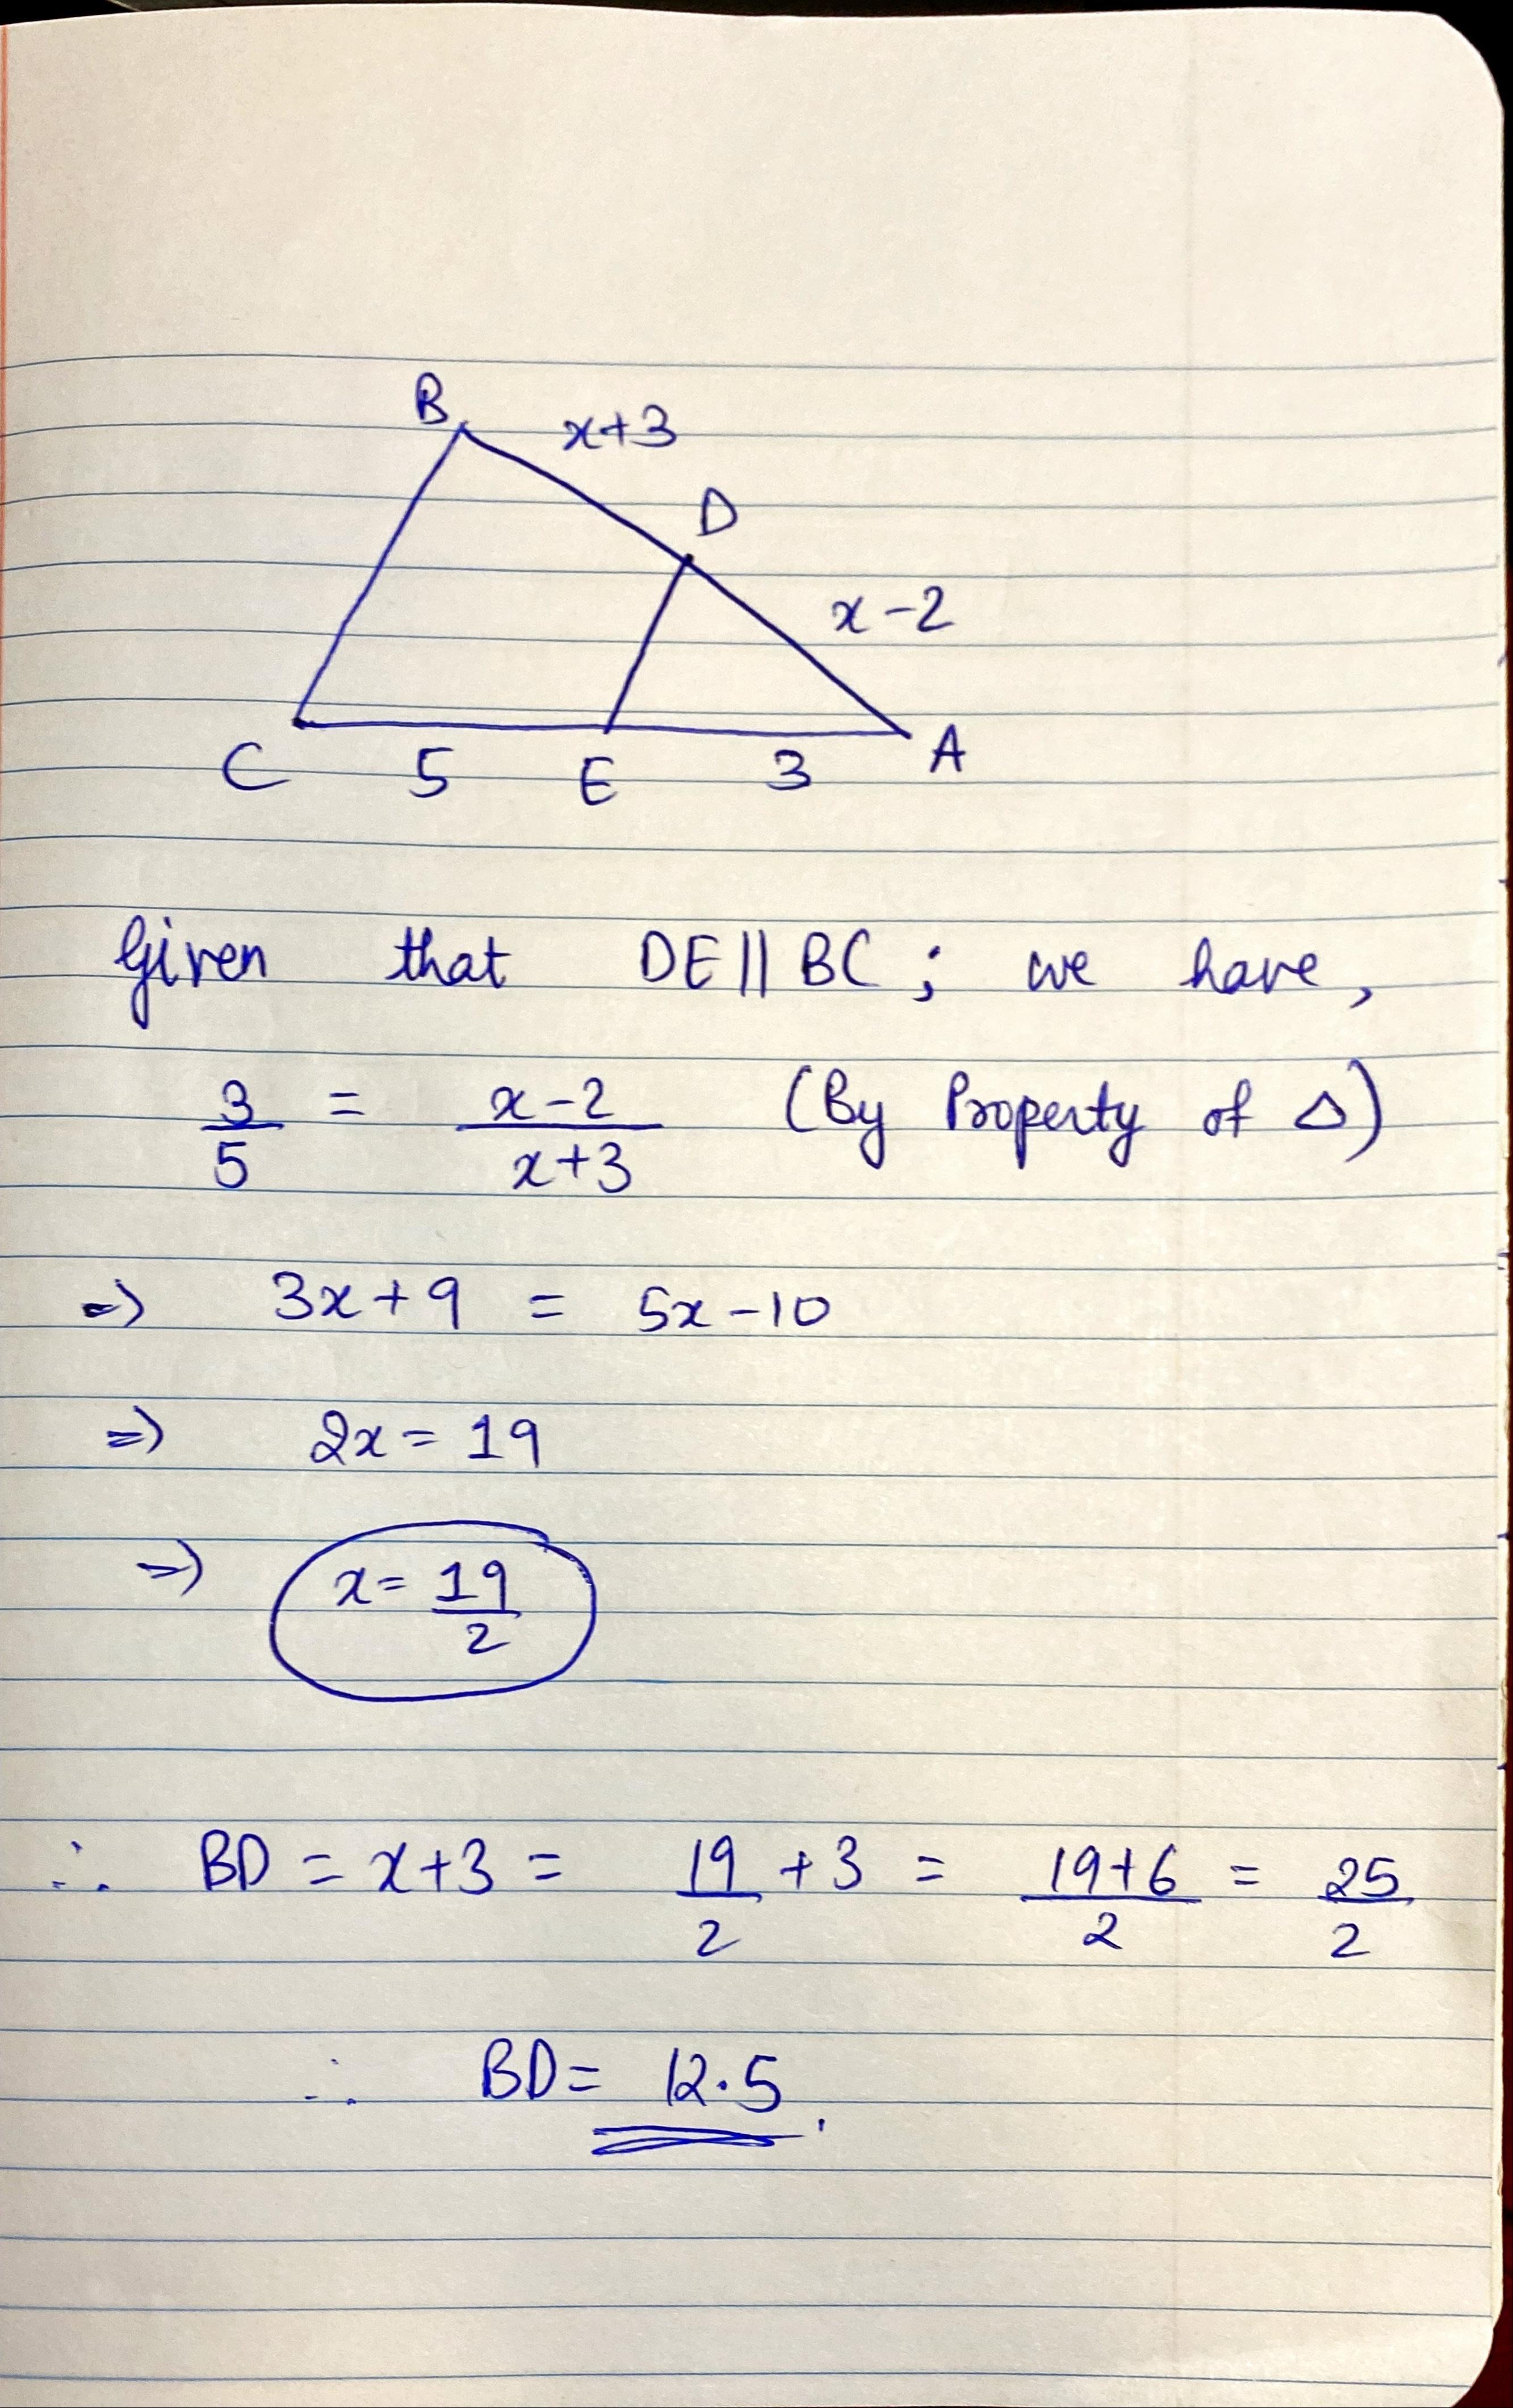 B x+3
D
x-2
C 5 E 3 A
Given that DE||BC; we have,
3/5 = (x-2)/(x+3) (By Property of Δ)
=> 3x+9 = 5x-10
=> 2x = 19
=> x = 19/2
∴ BD = x+3 = 19/2 + 3 = (19+6)/2 = 25/2
∴ BD = 12.5.